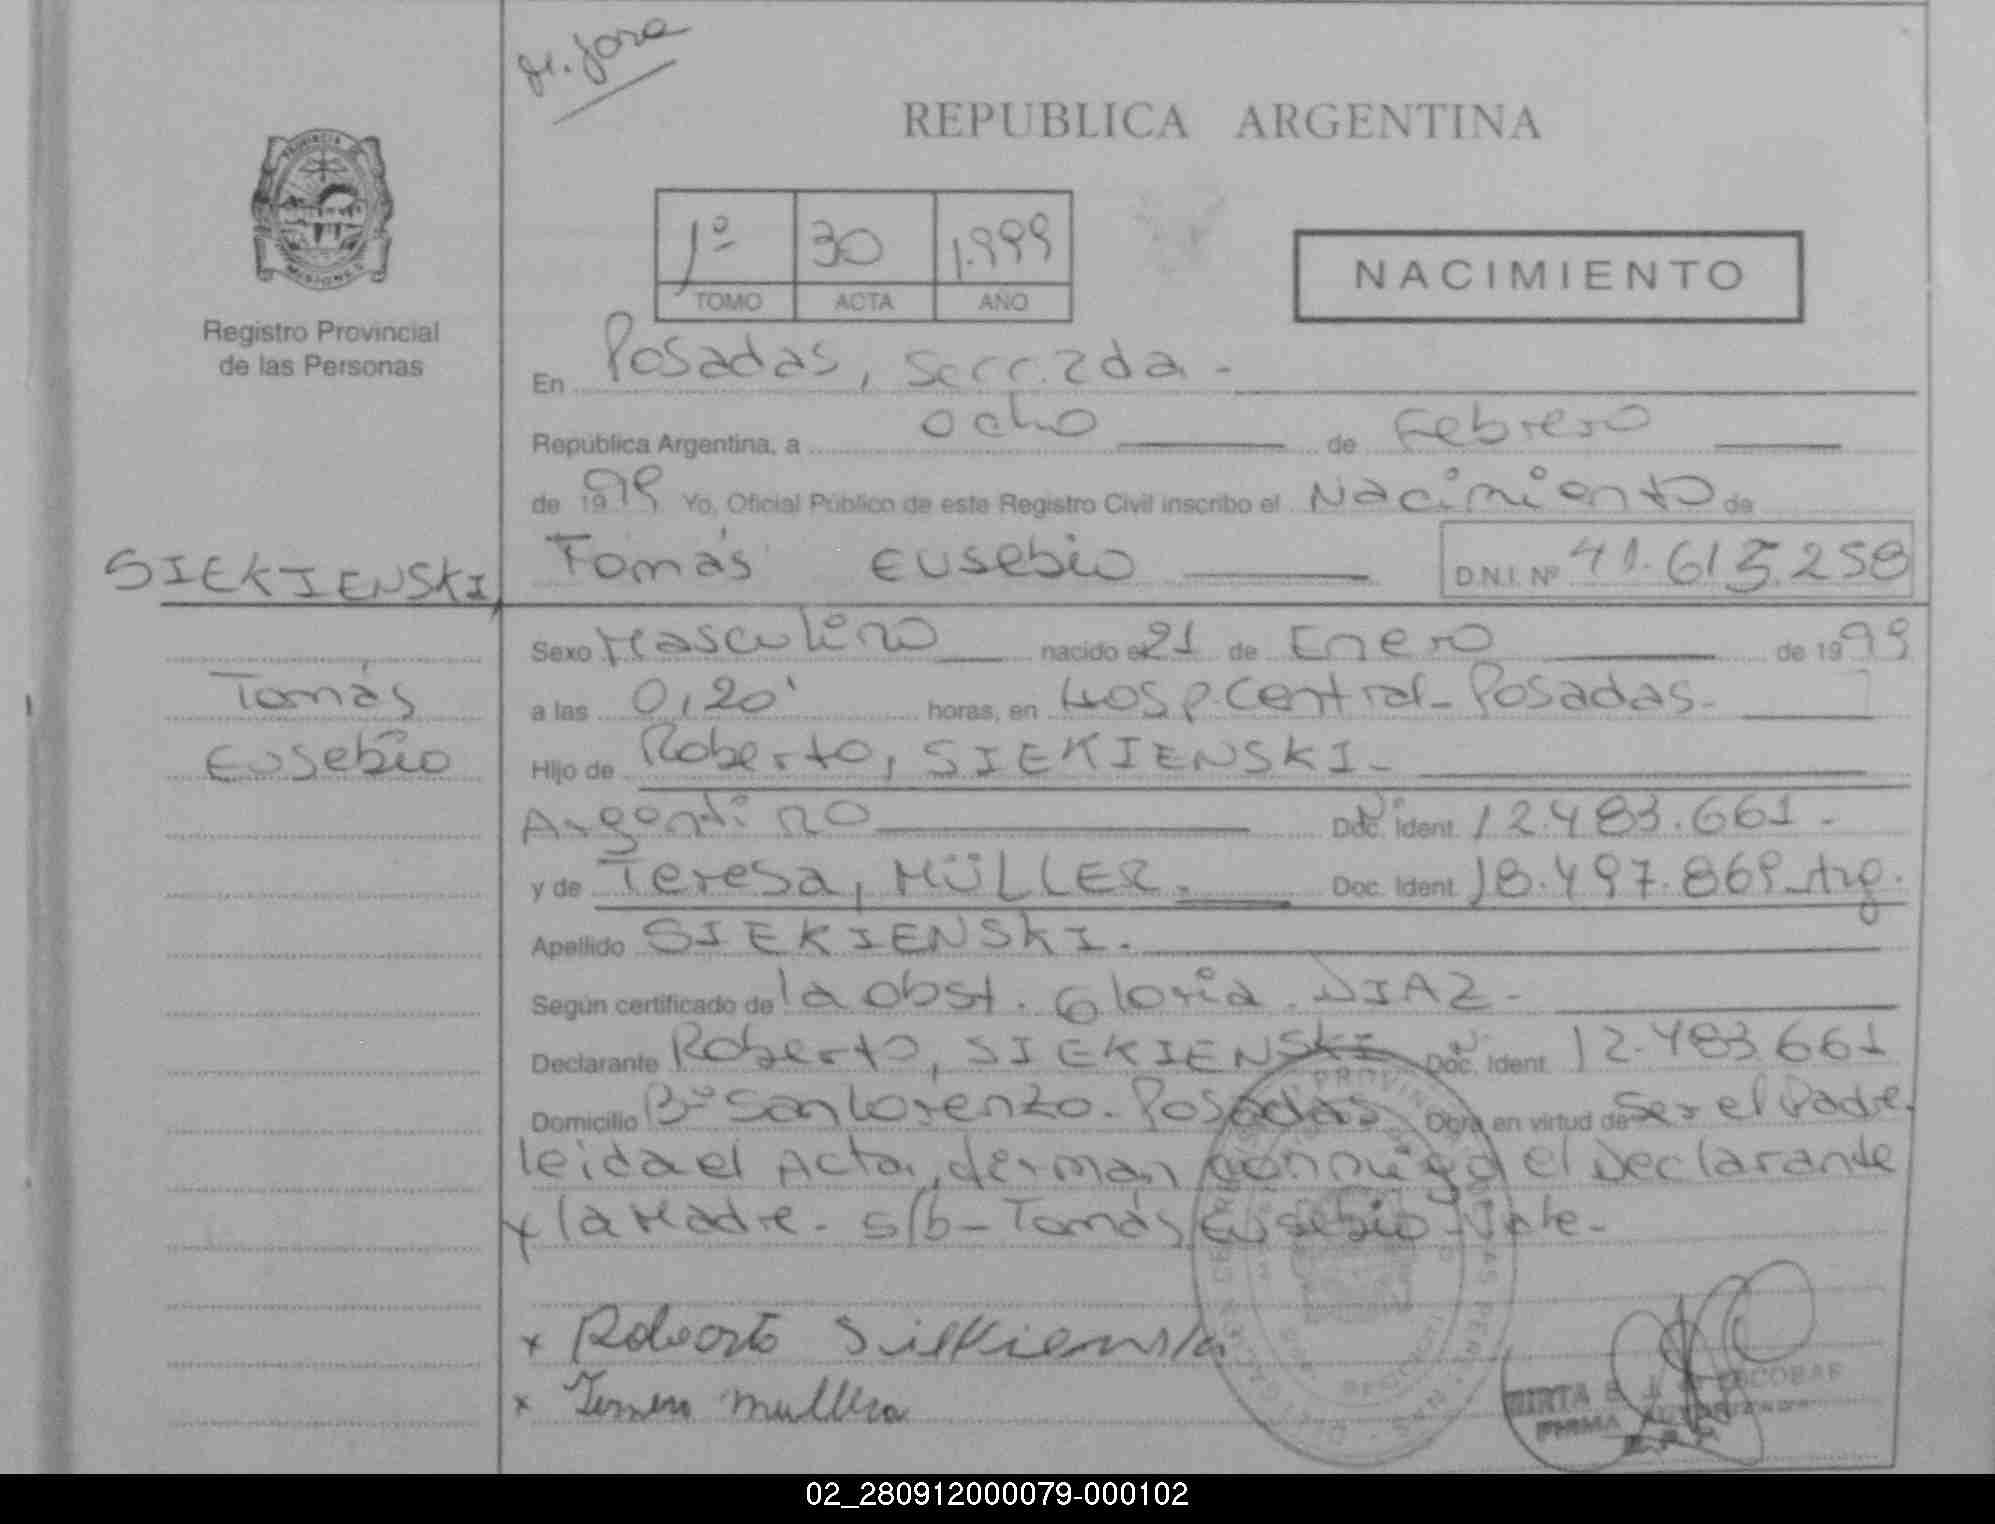 REPUBLICA ARGENTINA
PROVINCIA DE
MISIONES
Registro Provincial
de las Personas
1º 30 1.999
TOMO ACTA AÑO
NACIMIENTO
En Posadas, Secc. 2da. -
República Argentina, a ocho de Febrero
de 1999 Yo, Oficial Público de este Registro Civil inscribo el Nacimiento de
SIEKIENSKI Tomás Eusebio D.N.I. Nº 41.615.258
Sexo Masculino nacido el 21 de Enero de 1999
Tomás a las 0,20' horas, en Hosp. Central - Posadas -
Eusebio Hijo de Roberto, SIEKIENSKI -
Argentino Doc. Ident. 12.483.661 -
y de Teresa, MÜLLER. Doc. Ident. 18.497.869 Arg.
Apellido SIEKIENSKI.
Según certificado de la obst. Gloria DIAZ -
Declarante Roberto, SIEKIENSKI Doc. Ident. 12.483.661
Domicilio Bº San Lorenzo - Posadas Obra en virtud de Ser el Padre.
leida el Acta, firman conmigo el Declarante
y la Madre - s/b - Tomás Eusebio - Vale -
x Roberto Siekienski
x
ESCOBAR
FIRMA AUTORIZADA
02_280912000079-000102